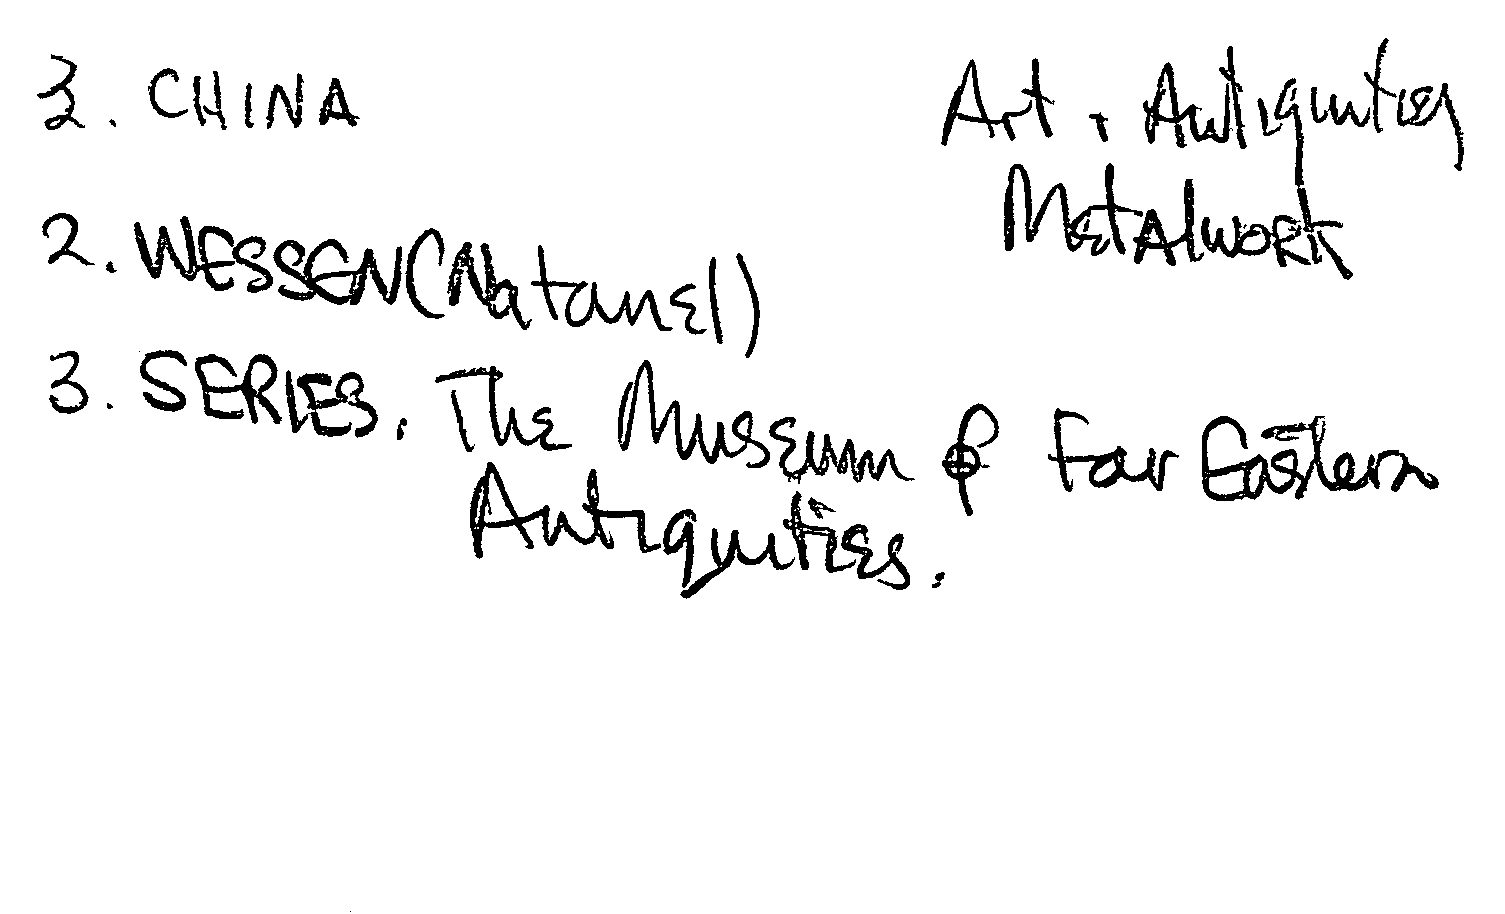 3. CHINA Art + Antiquities
Metalwork
2. WESSEN (Natanel)
3. SERIES. The Museum of Far Eastern
Antiquities.